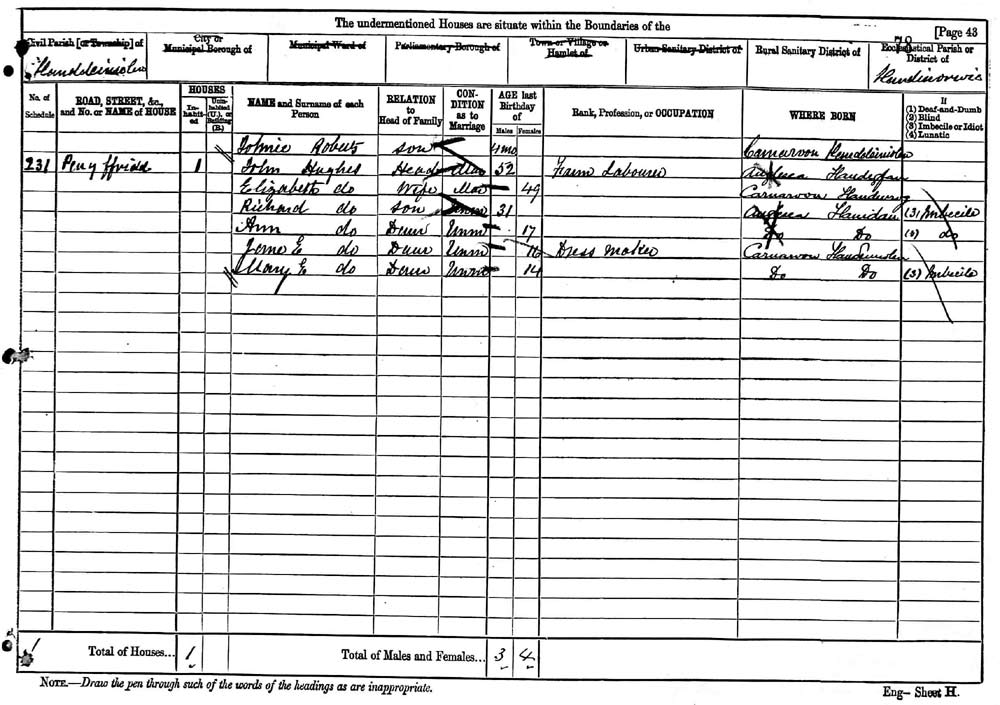 The undermentioned Houses are situate within the Boundaries of the
[Page 43
Civil Parish [or Township] of
City or Municipal Borough of
Municipal Ward of
Parliamentary Borough of
Town or Village or Hamlet of
Urban Sanitary District of
Rural Sanitary District of
Ecclesiastical Parish or District of
Llanddeiniolen
Llandinorwic
No. of Schedule
ROAD, STREET, &c., and No. or NAME of HOUSE
HOUSES
In-habit-ed
Unin-habited (U.), or Building (B.)
NAME and Surname of each Person
RELATION to Head of Family
CON-DITION as to Marriage
AGE last Birthday of
Males
Females
Rank, Profession, or OCCUPATION
WHERE BORN
If
(1) Deaf-and-Dumb
(2) Blind
(3) Imbecile or Idiot
(4) Lunatic
Johnie Roberts son 4 mo Carnarvon Llanddeiniolen
231 Penyffridd 1 John Hughes Head Mar 52 Farm Labourer Anglesea
Elizabeth do Wife Mar 49 Carnarvon
Richard do son Unm 31 Anglesea Llanidan (3) Imbecile
Ann do Daur Unm 17 Do Do (3) do
Jane E do Daur Unm 16 Dress maker Carnarvon Llanddeiniolen
Mary E do Daur Unm 14 Do Do (3) Imbecile
1 Total of Houses... 1 Total of Males and Females... 3 4
NOTE.—Draw the pen through such of the words of the headings as are inappropriate.
Eng- Sheet H.